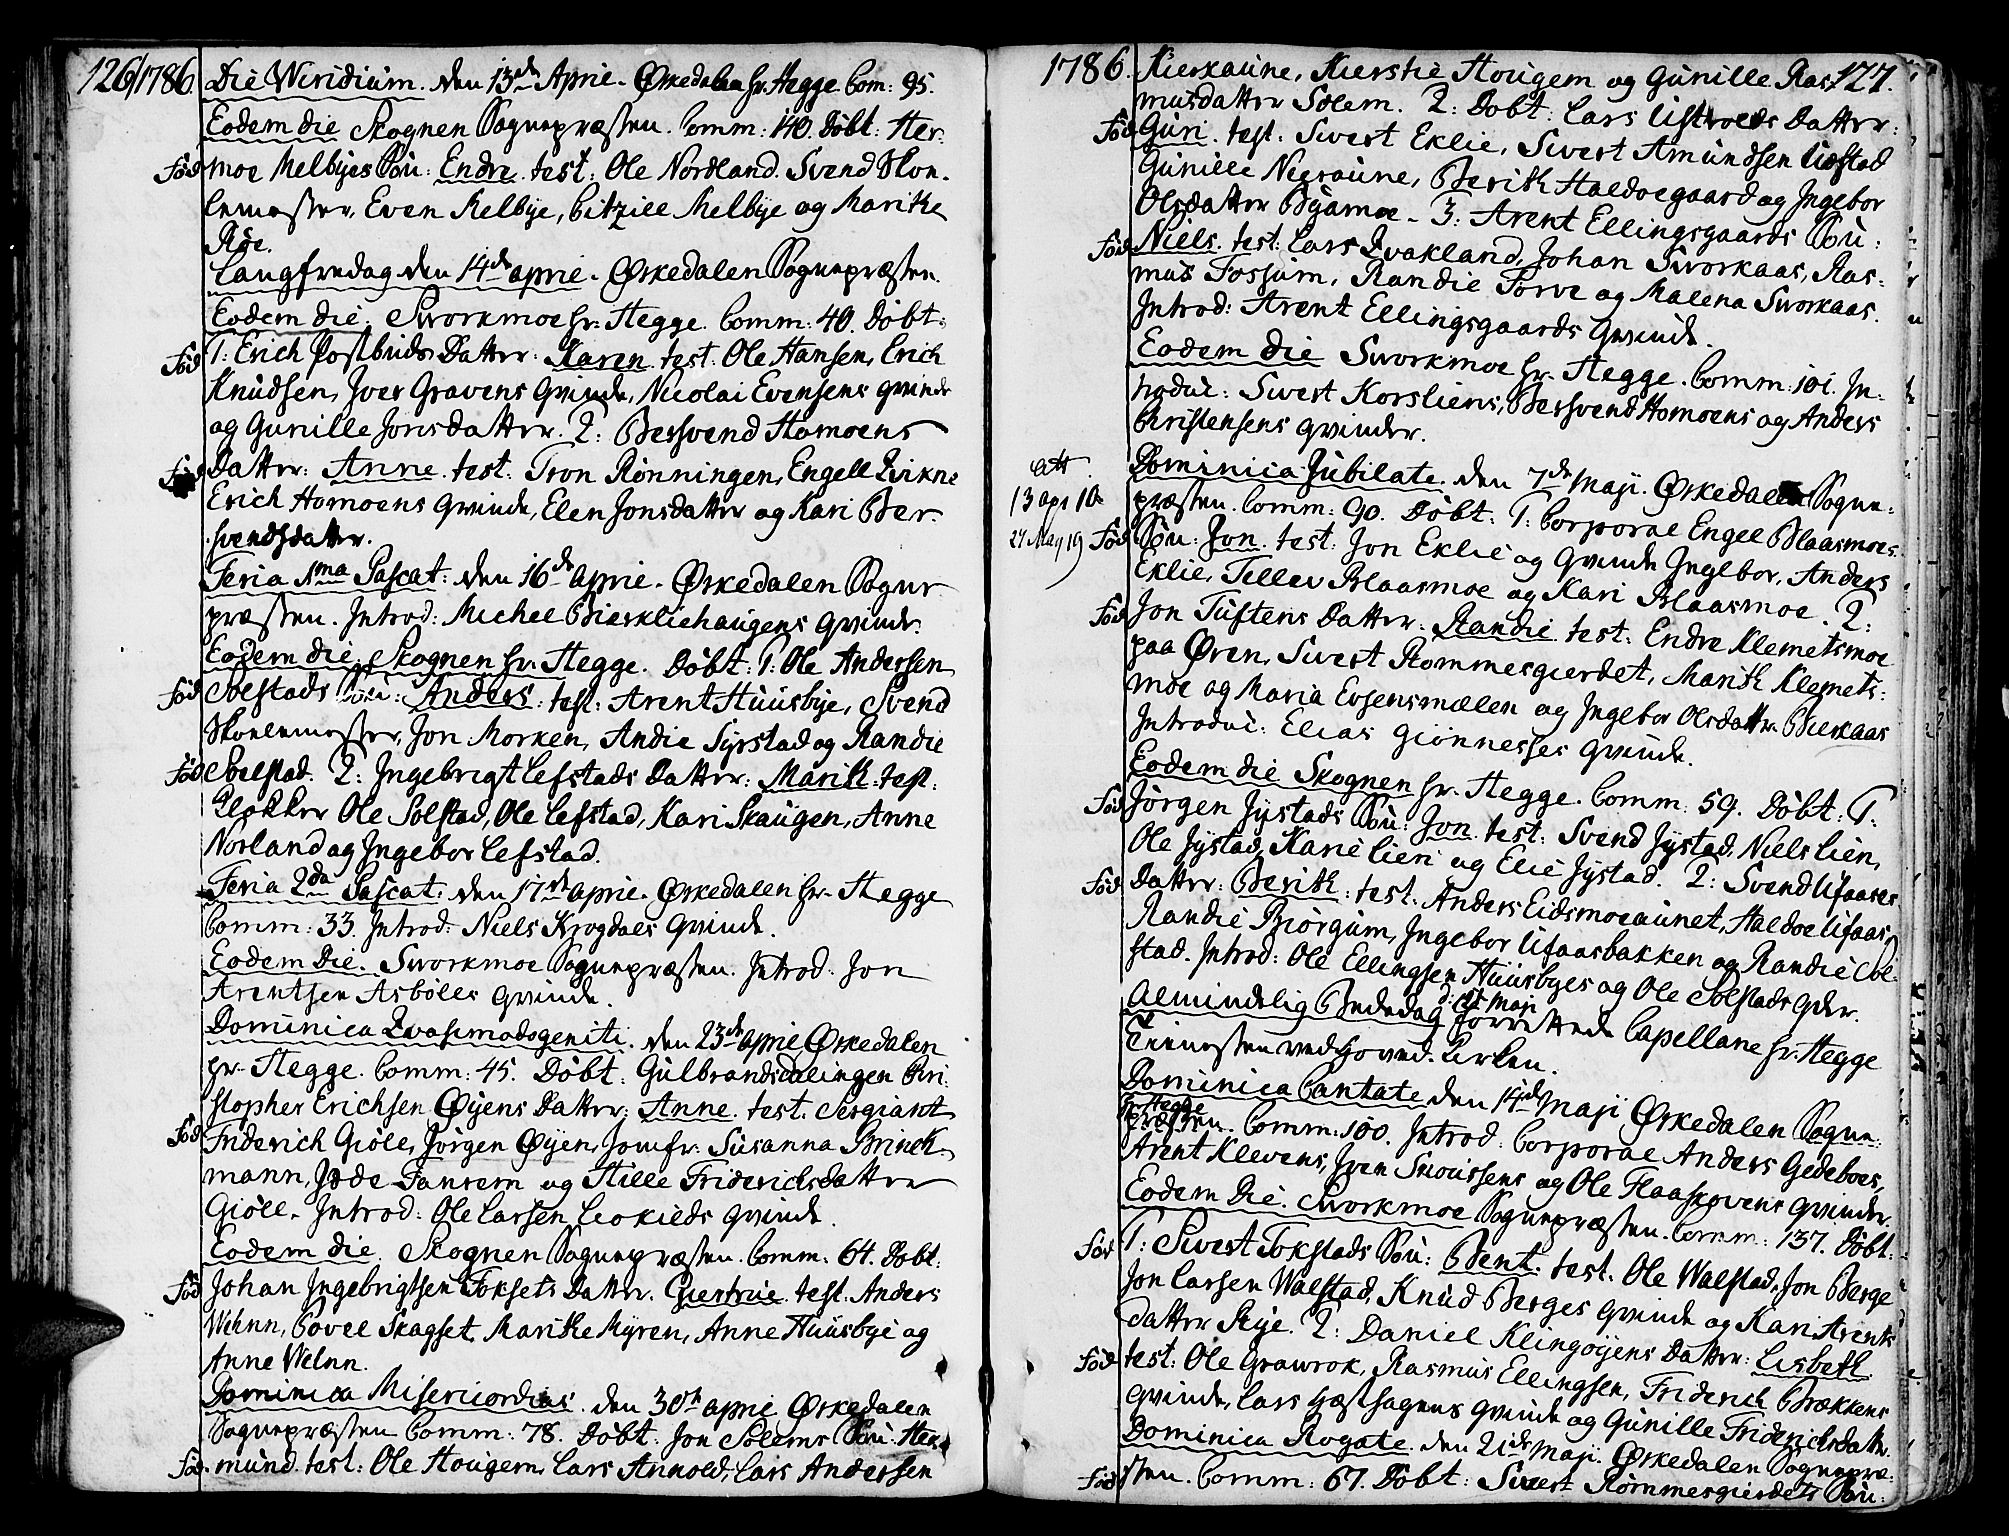 126/1786. Die Viridium. den 13de April. Ørkedalen hr. Hegge Com: 95.
Eodem die Skognen Sognepræsten. Comm: 140. Døbt: Hal-
Fød moe Melbyes Søn: Endre. test: Ole Nordland. Svend Skou-
lemester, Even Melbye, Citzill Melbye og Marithe
Røe.
Langfredag den 14de april. Ørkedalen Sognepræsten.
Eodem die. Sworkmoe hr: Hegge. Comm: 40. Døbt:
Fød 1: Erich Postbuds Datter: Karen. test: Ole Hansen, Erich
Knudsen, Iver Gravens Qvinde, Nicolai Evensens qvinde
og Gunille Jonsdatter. 2: Bersvend Homoens
Fød Datter: Anne. test: Tron Rønningen, Engell Qvikne
Erich Homoens Qvinde, Elen Jonsdatter og Kari Ber-
svendsdatter.
Feria 1ma Pascat: den 16de Aprie. Ørkedalen Sogne-
præsten. Introd: Michel Bierkliehaugens Qvinde.
Eodem die, Skognen hr. Hegge. Døbt: 1: Ole Andersen
Fød Solstads Søn: Anders. test: Arent Huusbye, Svend
Skolemester, Jon Morken, Andie Syrstad og Randie
Fød Solstad. 2: Ingebrigt Lefstads Datter: Marith. test:
Klokker Ole Solstad, Ole Lefstad, Kari Skaugen, Anne
Norland og Ingebor Lefstad.
Feria 2da Pascat: den 17de aprie. Ørkedalen hr. Hegge
Comm: 33. Introd: Niels Krogdals Qvinde.
Eodem Die. Sworkmoe Sognepræsten. Introd: Jon
Arentsen Asbøles Qvinde.
Dominica Qvasimodogeniti. den 23de aprie, Ørkedalen
hr. Hegge. Comm: 45. Døbt: Gulbrandsdalingen Chri-
stopher Erichsen Øyens Datter: Anne. test. Sergiant
Fød Friderich Giøle, Jørgen Øyen, Jomfr: Susanna Brinck-
mann, Fanrem og Hille Friderichsdatter
Giøle. Introd: Ole Larsen Qvinde.
Eodem die. Skognen Sognepræsten. Comm: 64. Døbt:
Fød Johan Ingebrigtsen Foksets Datter. Giertrue. test. Anders
Wehnn, Povel Skagset, Marithe Myren, Anne Huusbye og
Anne Welnn.
Dominica Misericordias. den 30te aprie Ørkedalen
Sognepræsten Comm: 78. Døbt: Jon Solems Søn: Her-
Fød mund. test: Ole Hougem, Lars Arnold, Lars Andersen
1786. Kierkaune, Kierstie Hougem og Gunille Ras- 127.
musdatter Solem. 2: Døbt: Lars Datter:
Fød Guri. test: Swert Eklie, Swert Amundsen
Gunille Nieraune, Berith Haldoegaard og Ingebor
Olsdatter Byamoe. 3: Arent Ellingsgaards Søn:
Fød Niels. test: Lars Qvakland, Johan Sworkaas, Ras-
mus Fossum, Randie Torve og Malena Sworkaas.
Introd: Arent Ellingsgaards Qvinde.
Eodem die Sworkmoe hr. Hegge. Comm: 101. In-
troduc: Swert Korsliens, Bersvend Homoens og Anders
Christensens qvinder.
Att.
13 apr 10
27 May 19
Dominica Jubilate. den 7de Maji. Ørkedalen Sogne-
præsten. Comm: 90. Døbt: 1: Corporal Engel Blaasmoes
Fød Søn: Jon. test: Jon Eklie og Qvinde Ingebor, Anders
Eklie, Tellev Blaasmoe og Kari Blaasmoe. 2:
Fød Jon Tuftens Datter: Randie. test: Endre Klemetsmoe
paa Øren, Swert Rommesgierdet, Marith Klemets-
moe og Maria Evsensmælen og Ingebor Olsdatter Bierkaas
Introduc: Elias Giønnesses Qvinde.
Eodem die Skognen hr. Hegge. Comm: 59. Døbt: 1:
Fød Jørgen Jystads Søn: Jon. test: Svend Jystad, Niels Lien,
Ole Jystad, Karie Lien og Elie Jystad. 2: Svend Ufaases
Fød Datter: Berith: test: Anders Eidsmoeaunet, Haldoe Ufaas,
Randie Biørgum, Ingebor Ufaasbakken og Randie Sol-
stad. Introd: Ole Ellingsen Huusbyes og Ole Solstads Qder.
Almindelig Bededag d: 12t Maji forrettede Capellane hr: Hegge
Tienesten ved Hoved-Kirken.
Dominica Cantate den 14de Maji Ørkedalen Sogne-
hr. Hegge
præsten. Comm: 100. Introd: Corporal Anders Gedeboes,
Arent Klevens, Iven Snoussens og Ole Flaaskovens qvinder.
Eodem Die. Sworkmoe Sognepræsten. Comm: 137. Døbt:
Fød 1: Swert Fokstads Søn: Bent. test. Ole Walstad, Jon Berge
Jon Larsen Walstad, Knud Berges Qvinde og Kari Arents
datter Rye. 2: Daniel Klingøyens Datter: Lisbeth
Fød test: Ole Grawrok, Rasmus Ellingsen, Friderich Brækkens
qvinde, Lars Hæsthagens qvinde og Gunille Friderichsdatter.
Dominica Rogate. den 21de Maji. Ørkedalen Sognepræ-
Fød sten. Comm: 67. Døbt: Swert Rømmesgierdets Søn: